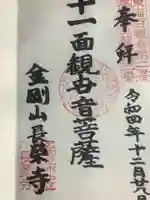 奉拝
令和四年十二月廿八日
十一面観世音菩薩
金剛山長楽寺